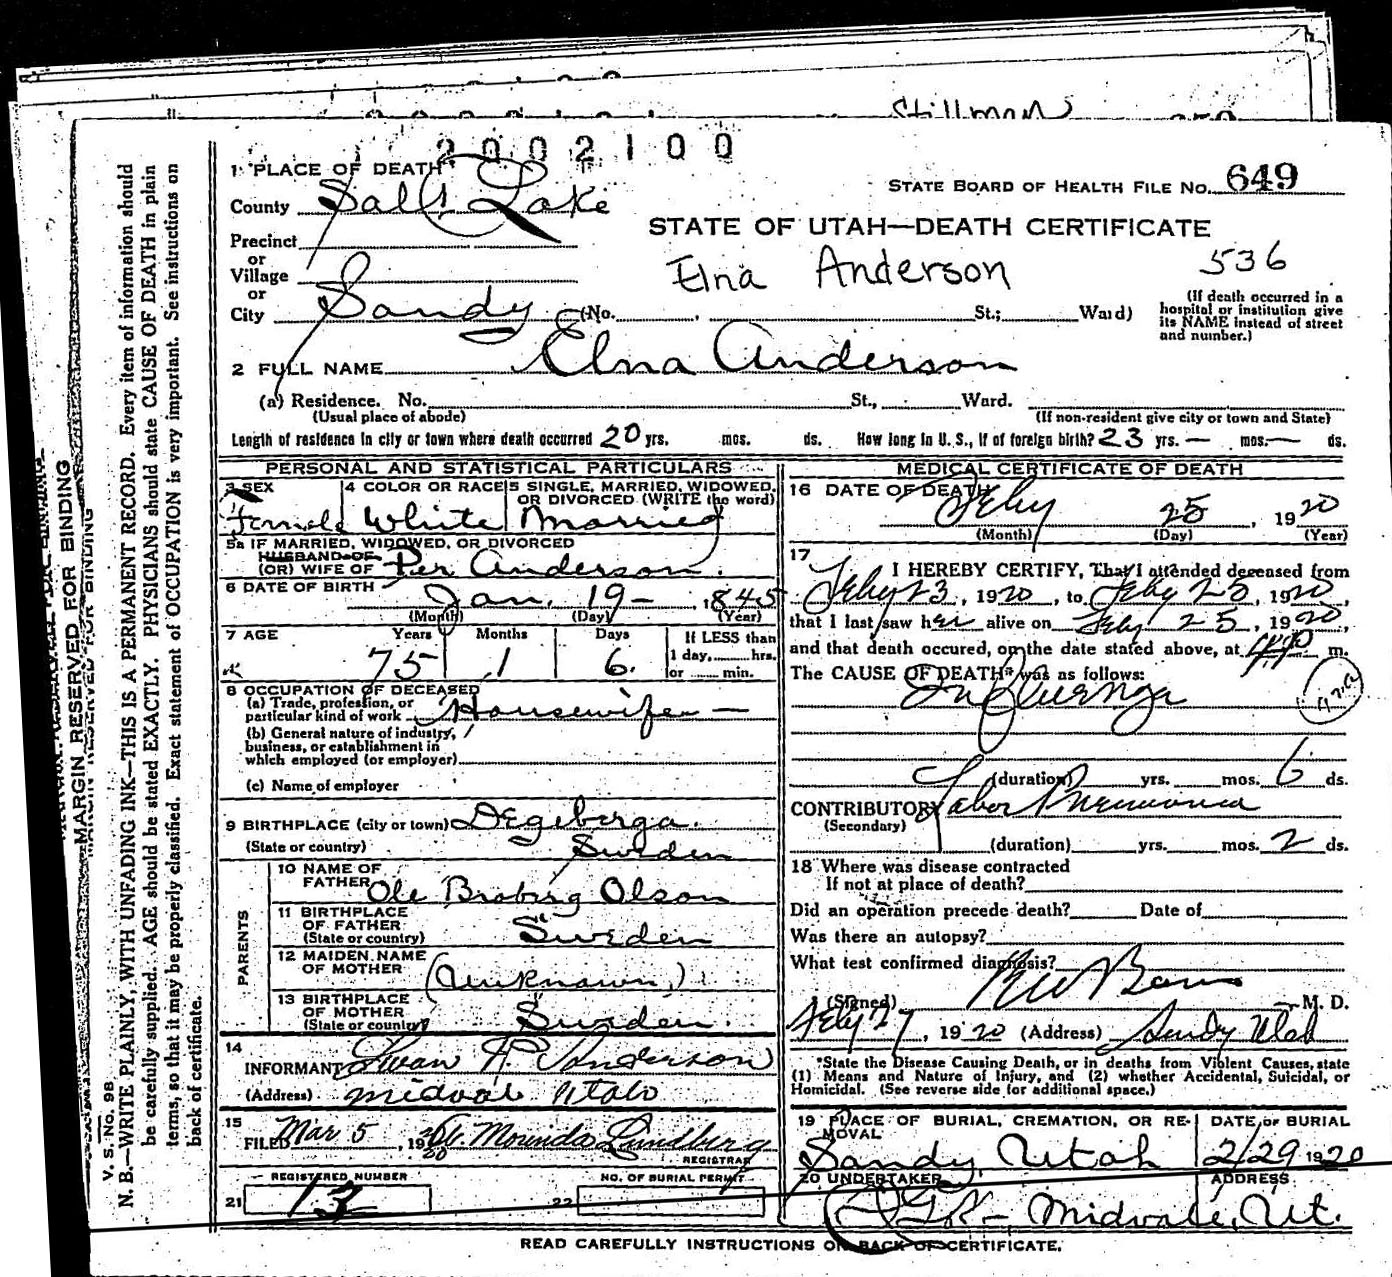 Stillman
2002100
1 PLACE OF DEATH
STATE BOARD OF HEALTH FILE No. 649
County Salt Lake
STATE OF UTAH—DEATH CERTIFICATE
Precinct
or
Village
Elna Anderson 536
or
City Sandy (No. , St.; Ward)
(If death occurred in a
hospital or institution give
its NAME instead of street
and number.)
2 FULL NAME Elna Anderson
(a) Residence. No. St., Ward.
(Usual place of abode) (If non-resident give city or town and State)
Length of residence in city or town where death occurred 20 yrs. mos. ds. How long in U. S., if of foreign birth? 23 yrs. — mos. — ds.
PERSONAL AND STATISTICAL PARTICULARS
3 SEX 4 COLOR OR RACE 5 SINGLE, MARRIED, WIDOWED,
OR DIVORCED (WRITE the word)
Female White Married
5a IF MARRIED, WIDOWED, OR DIVORCED
HUSBAND OF
(OR) WIFE OF Per Anderson.
6 DATE OF BIRTH
Jan. 19 — , 1845
(Month) (Day) (Year)
7 AGE Years Months Days If LESS than
1 day, hrs.
75 1 6. or min.
8 OCCUPATION OF DECEASED
(a) Trade, profession, or
particular kind of work Housewife —
(b) General nature of industry,
business, or establishment in
which employed (or employer)
(c) Name of employer
9 BIRTHPLACE (city or town) Degeberga.
(State or country) Sweden
PARENTS
10 NAME OF
FATHER Ole Broberg Olson
11 BIRTHPLACE
OF FATHER
(State or country) Sweden
12 MAIDEN NAME
OF MOTHER (Unknown)
13 BIRTHPLACE
OF MOTHER
(State or country) Sweden
14
INFORMANT Swan A. Anderson
(Address) Midvale Utah
15
FILED Mar 5, 1920 Morinda Lundberg
REGISTRAR
REGISTERED NUMBER NO. OF BURIAL PERMIT
21 13 22
MEDICAL CERTIFICATE OF DEATH
16 DATE OF DEATH
Feby 25, 1920
(Month) (Day) (Year)
17
I HEREBY CERTIFY, That I attended deceased from
Feby 23, 1920, to Feby 25, 1920,
that I last saw her alive on Feby 25, 1920,
and that death occured, on the date stated above, at m.
The CAUSE OF DEATH* was as follows:
Influenza
(duration) yrs. mos. 6 ds.
CONTRIBUTORY Labor Pneumonia
(Secondary)
(duration) yrs. mos. 2 ds.
18 Where was disease contracted
If not at place of death?
Did an operation precede death? Date of
Was there an autopsy?
What test confirmed diagnosis?
(Signed) M. D.
Feby 27, 1920 (Address) Sandy Utah
*State the Disease Causing Death, or in deaths from Violent Causes, state
(1) Means and Nature of Injury, and (2) whether Accidental, Suicidal, or
Homicidal. (See reverse side for additional space.)
19 PLACE OF BURIAL, CREMATION, OR RE- DATE OF BURIAL
MOVAL
Sandy, Utah 2/29 1920
20 UNDERTAKER ADDRESS
Midvale, Ut.
READ CAREFULLY INSTRUCTIONS ON BACK OF CERTIFICATE.
MARGIN RESERVED FOR BINDING
V. S. No. 98
N. B.—WRITE PLAINLY, WITH UNFADING INK—THIS IS A PERMANENT RECORD. Every item of information should
be carefully supplied. AGE should be stated EXACTLY. PHYSICIANS should state CAUSE OF DEATH in plain
terms, so that it may be properly classified. Exact statement of OCCUPATION is very important. See instructions on
back of certificate.